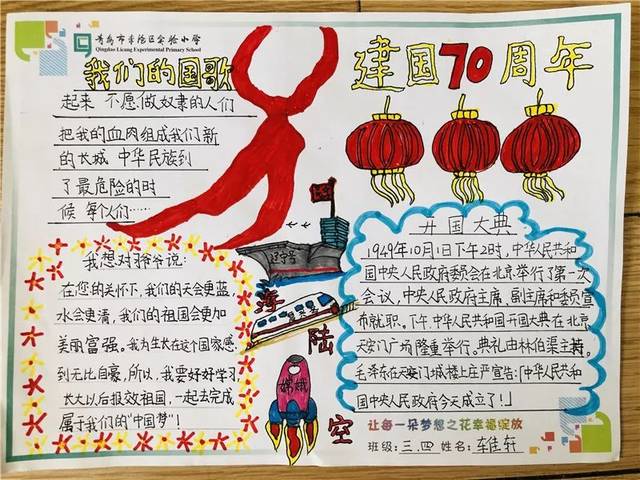 青岛市李沧区实验小学
Qingdao Licang Experimental Primary School
我们的国歌
起来 不愿做奴隶的人们
把我的血肉组成我们新
的长城 中华民族到
了最危险的时
候 每个人们……
建国70周年
我想对爷爷说:
在您的关怀下,我们的天会更蓝,
水会更清,我们的祖国会更加
美丽富强。我为生长在这个国家感
到无比自豪。所以,我要好好学习
长大以后报效祖国,一起去完成
属于我们的“中国梦”!
辽宁号
海
陆
空
嫦娥
开国大典
1949年10月1日下午2时,中华人民共和
国中央人民政府委员会在北京举行了第一次
会议,中央人民政府主席、副主席和委员宣
布就职。下午.中华人民共和国开国大典在北京
天安门广场隆重举行。典礼由林伯渠主持。
毛泽东在天安门城楼上庄严宣告:「中华人民共和
国中央人民政府今天成立了!」
让每一朵梦想之花幸福绽放
班级:三.四 姓名:车佳轩